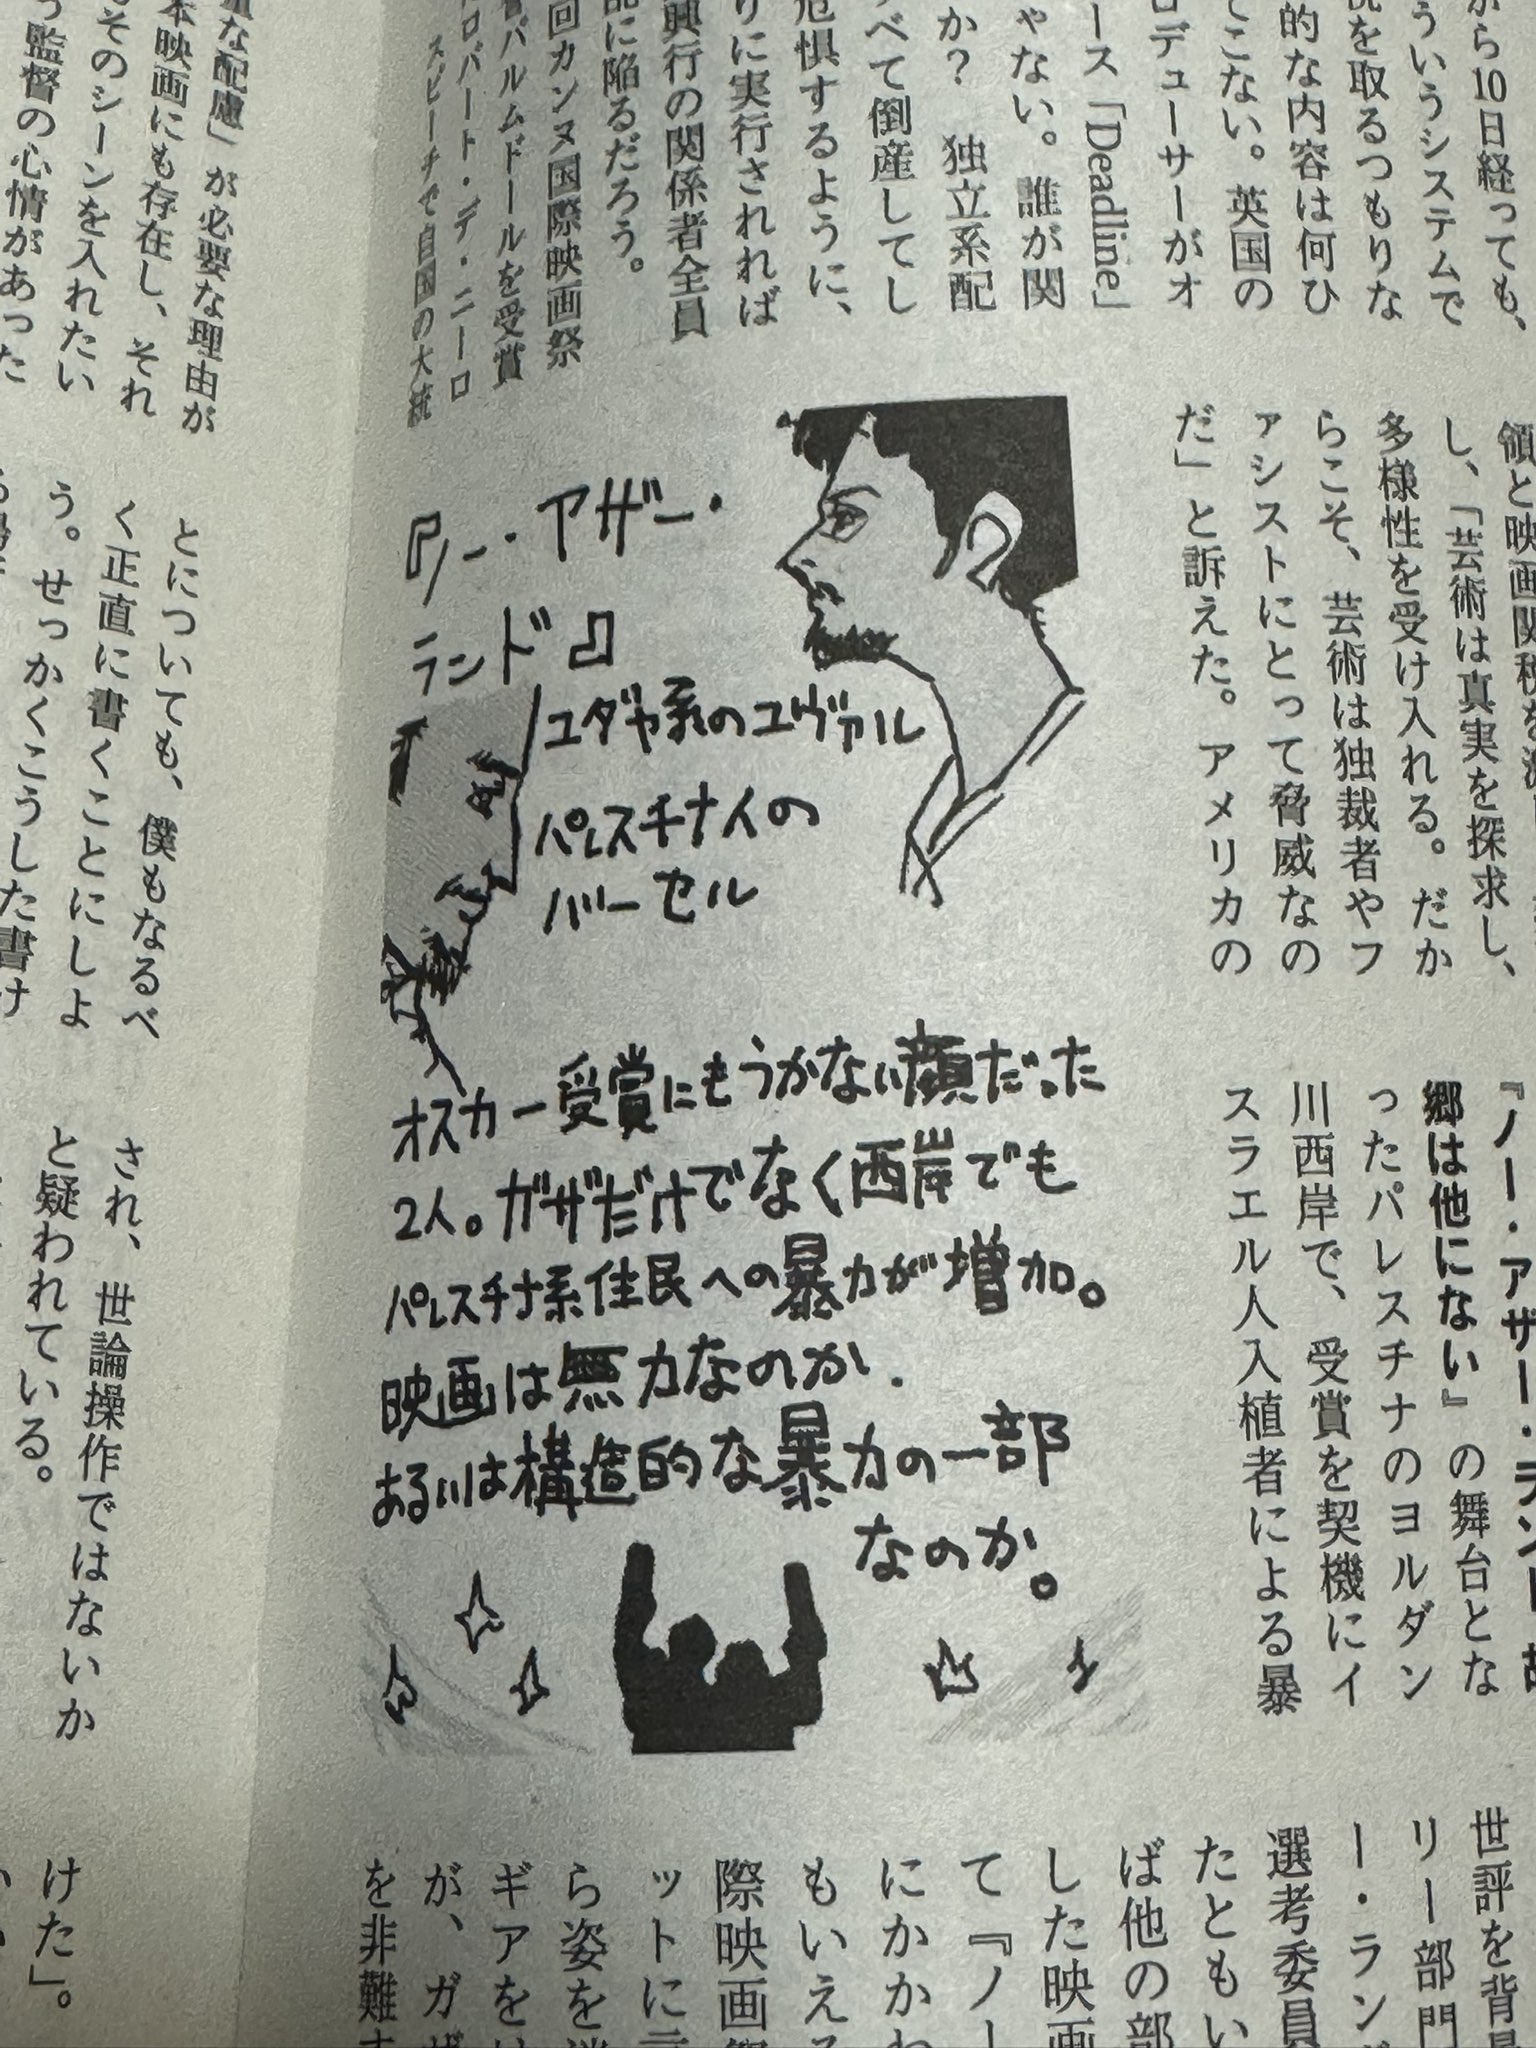 から10日経っても、
ういうシステムで
を取るつもりな
的な内容は何ひ
てこない。英国の
ロデューサーがオ
ース「Deadline」
ゃない。誰が関
か？　独立系配
べて倒産してし
危惧するように、
りに実行されれば
興行の関係者全員
に陥るだろう。
回カンヌ国際映画祭
パルムドールを受賞
ロバート・デ・ニーロ
スピーチで自国の大統
領と映画関税を
し、「芸術は真実を探求し、
多様性を受け入れる。だか
らこそ、芸術は独裁者やフ
ァシストにとって脅威なの
だ」と訴えた。アメリカの
『ノー・アザー・
ランド』
ユダヤ系のユヴァル
パレスチナ人の
バーセル
オスカー受賞にもうかない顔だった
2人。ガザだけでなく西岸でも
パレスチナ系住民への暴力が増加。
映画は無力なのか.
あるいは構造的な暴力の一部
なのか。
『ノー・アザー・ランド 故
郷は他にない』の舞台とな
ったパレスチナのヨルダン
川西岸で、受賞を契機にイ
スラエル人入植者による暴
世評を背
リー部門
ー・ラン
選考委員
たともい
ば他の部
した映画
て『ノー
にかかわ
もいえ
際映画
ットに
ら姿を
ギアを
が、ガザ
を非難
な配慮」が必要な理由が
本映画にも存在し、それ
そのシーンを入れたい
監督の心情があった
とについても、僕もなるべ
く正直に書くことにしよ
う。せっかくこうした書け
され、世論操作ではないか
と疑われている。
けた」。